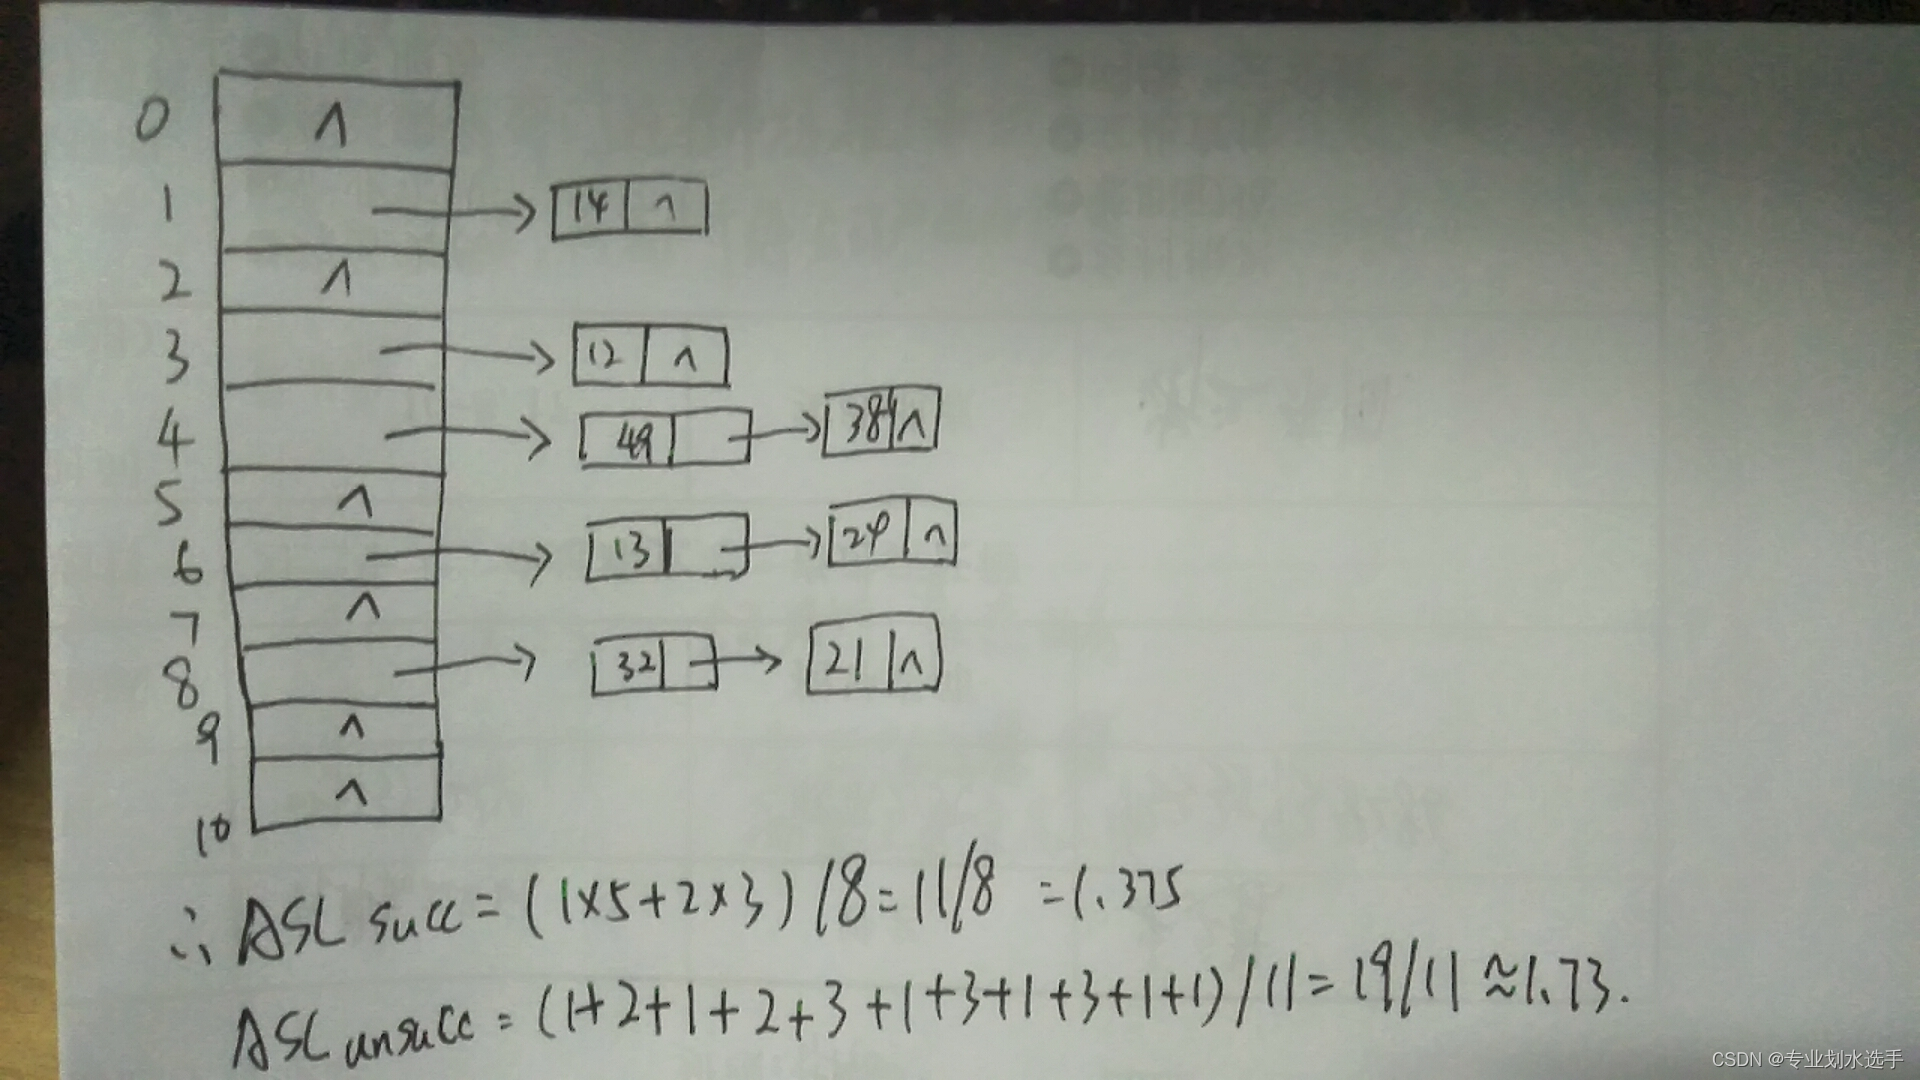 0 ∧
1 14 ∧
2 ∧
3 12 ∧
4 49 38 ∧
5 ∧
6 13 24 ∧
7 ∧
8 32 21 ∧
9 ∧
10 ∧
∴ ASL succ = (1×5+2×3)/8=11/8 =1.375
ASL unsucc = (1+2+1+2+3+1+3+1+3+1+1)/11=19/11≈1.73.
CSDN @专业划水选手